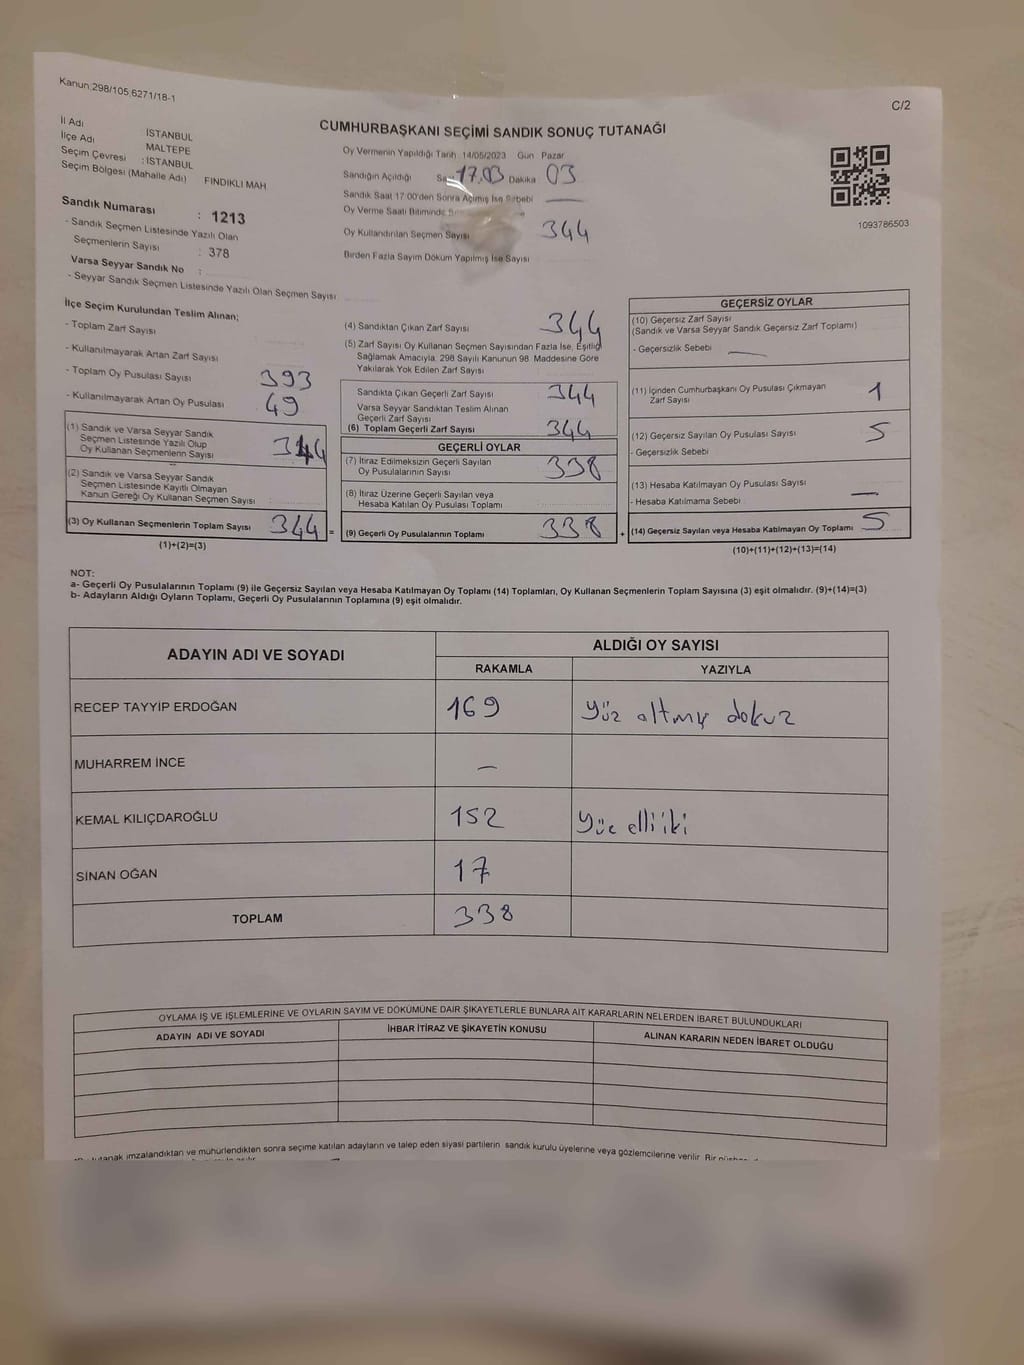 Kanun,298/105,6271/18-1
C/2
CUMHURBAŞKANI SEÇİMİ SANDIK SONUÇ TUTANAĞI
İl Adı İSTANBUL
İlçe Adı MALTEPE
Seçim Çevresi : İSTANBUL
Seçim Bölgesi (Mahalle Adı) FINDIKLI MAH
Sandık Numarası : 1213
- Sandık Seçmen Listesinde Yazılı Olan
Seçmenlerin Sayısı : 378
Varsa Seyyar Sandık No :
- Seyyar Sandık Seçmen Listesinde Yazılı Olan Seçmen Sayısı
Oy Vermenin Yapıldığı Tarih 14/05/2023 Gün Pazar
Sandığın Açıldığı 17.03 Dakika 03
Sandık Saat 17 00'den Sonra Açılmış İse Sebebi —
Oy Verme Saati Bitiminde
Oy Kullandırılan Seçmen Sayısı 344
Birden Fazla Sayım Döküm Yapılmış İse Sayısı
1093786503
İlçe Seçim Kurulundan Teslim Alınan;
- Toplam Zarf Sayısı
- Kullanılmayarak Artan Zarf Sayısı
- Toplam Oy Pusulası Sayısı 393
- Kullanılmayarak Artan Oy Pusulası 49
(1) Sandık ve Varsa Seyyar Sandık
Seçmen Listesinde Yazılı Olup
Oy Kullanan Seçmenlerin Sayısı 344
(2) Sandık ve Varsa Seyyar Sandık
Seçmen Listesinde Kayıtlı Olmayan
Kanun Gereği Oy Kullanan Seçmen Sayısı
(3) Oy Kullanan Seçmenlerin Toplam Sayısı 344 =
(1)+(2)=(3)
(4) Sandıktan Çıkan Zarf Sayısı 344
(5) Zarf Sayısı Oy Kullanan Seçmen Sayısından Fazla İse, Eşitliği
Sağlamak Amacıyla, 298 Sayılı Kanunun 98. Maddesine Göre
Yakılarak Yok Edilen Zarf Sayısı
Sandıkta Çıkan Geçerli Zarf Sayısı 344
Varsa Seyyar Sandıktan Teslim Alınan
Geçerli Zarf Sayısı
(6) Toplam Geçerli Zarf Sayısı 344
GEÇERLİ OYLAR
(7) İtiraz Edilmeksizin Geçerli Sayılan
Oy Pusulalarının Sayısı 338
(8) İtiraz Üzerine Geçerli Sayılan veya
Hesaba Katılan Oy Pusulası Toplamı
(9) Geçerli Oy Pusulalarının Toplamı 338 +
GEÇERSİZ OYLAR
(10) Geçersiz Zarf Sayısı
(Sandık ve Varsa Seyyar Sandık Geçersiz Zarf Toplamı)
- Geçersizlik Sebebi —
(11) İçinden Cumhurbaşkanı Oy Pusulası Çıkmayan
Zarf Sayısı 1
(12) Geçersiz Sayılan Oy Pusulası Sayısı 5
- Geçersizlik Sebebi
(13) Hesaba Katılmayan Oy Pusulası Sayısı —
- Hesaba Katılmama Sebebi
(14) Geçersiz Sayılan veya Hesaba Katılmayan Oy Toplamı 5
(10)+(11)+(12)+(13)=(14)
NOT:
a- Geçerli Oy Pusulalarının Toplamı (9) ile Geçersiz Sayılan veya Hesaba Katılmayan Oy Toplamı (14) Toplamları, Oy Kullanan Seçmenlerin Toplam Sayısına (3) eşit olmalıdır. (9)+(14)=(3)
b- Adayların Aldığı Oyların Toplamı, Geçerli Oy Pusulalarının Toplamına (9) eşit olmalıdır.
ADAYIN ADI VE SOYADI
ALDIĞI OY SAYISI
RAKAMLA YAZIYLA
RECEP TAYYİP ERDOĞAN 169 Yüz altmış dokuz
MUHARREM İNCE —
KEMAL KILIÇDAROĞLU 152 Yüz elli iki
SİNAN OĞAN 17
TOPLAM 338
OYLAMA İŞ VE İŞLEMLERİNE VE OYLARIN SAYIM VE DÖKÜMÜNE DAİR ŞİKAYETLERLE BUNLARA AİT KARARLARIN NELERDEN İBARET BULUNDUKLARI
ADAYIN ADI VE SOYADI İHBAR İTİRAZ VE ŞİKAYETİN KONUSU ALINAN KARARIN NEDEN İBARET OLDUĞU
tutanak imzalandıktan ve mühürlendikten sonra seçime katılan adayların ve talep eden siyasi partilerin sandık kurulu üyelerine veya gözlemcilerine verilir. Bir